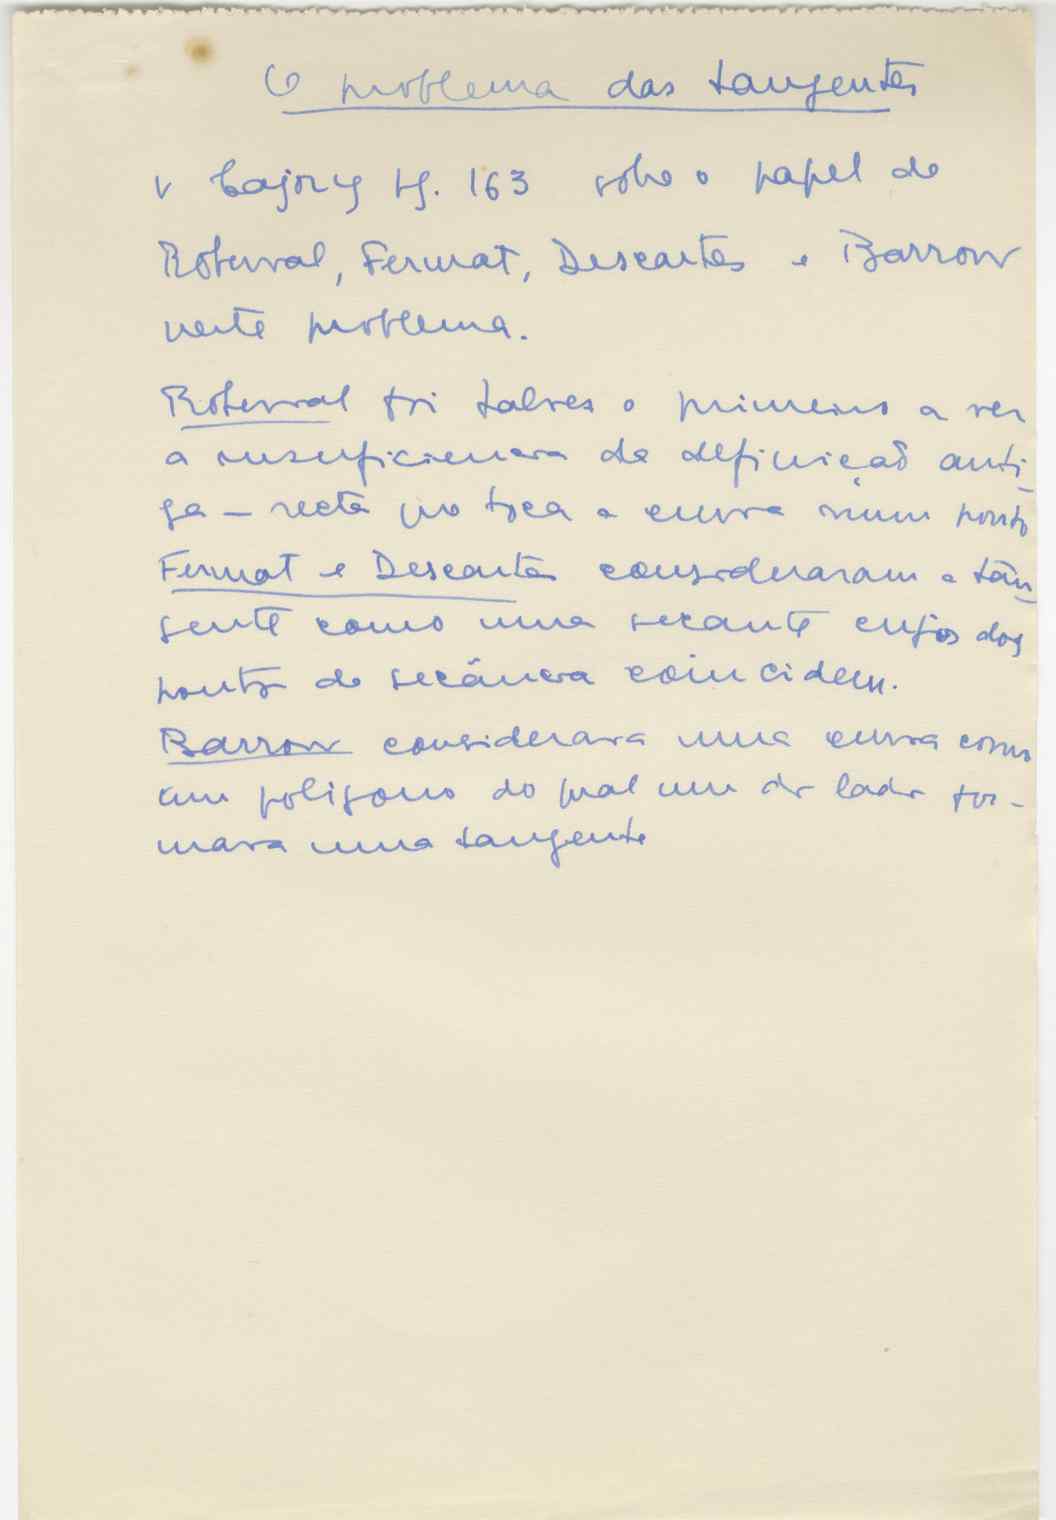 O problema das tangentes
v Cajory pg. 163 sobre o papel de
Roberval, Fermat, Descartes e Barrow
neste problema.
Roberval foi talves o primeiro a ver
a insuficiencia da definição anti-
ga – recta que toca a curva num ponto
Fermat e Descartes consideraram a tan-
gente como uma secante cujos dois
pontos de secância coincidem.
Barrow considerava uma curva como
um poligono do qual um dos lados for-
mava uma tangente